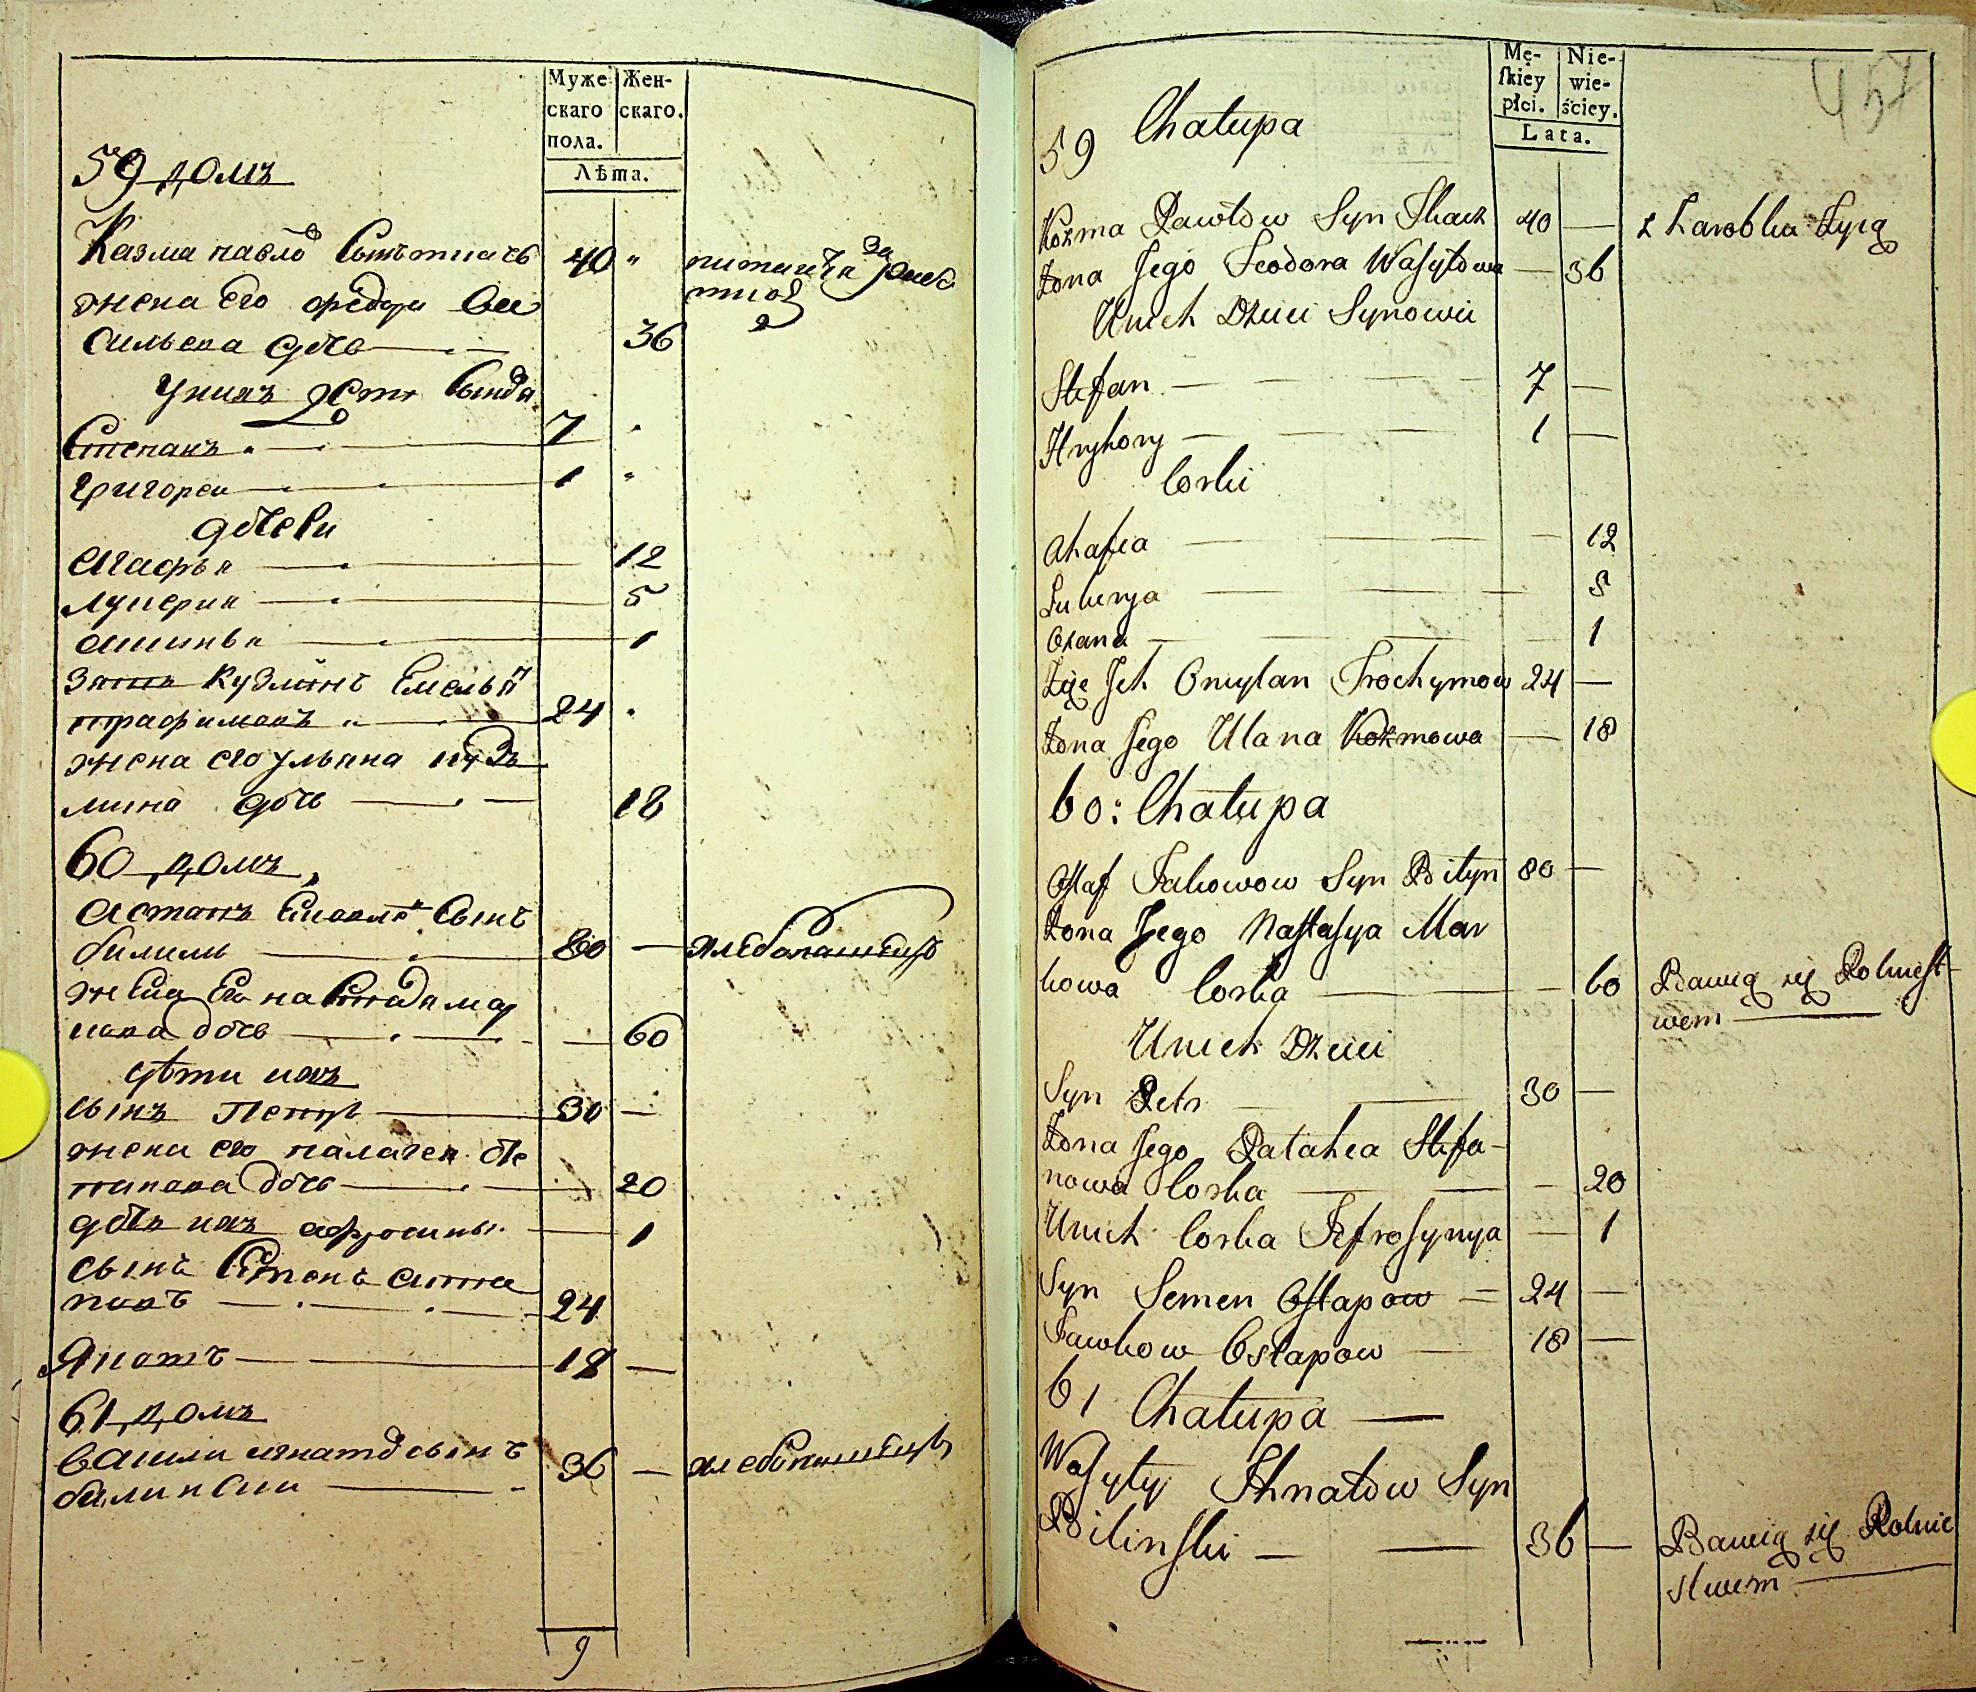 Муже
скаго
пола.
Жен-
скаго.
Лѣта.
59 домъ
Казма павло Сынъ ткачъ 40 "
жена его федора ва
сильева дочь 36
у нихъ дети Сыновя
Степанъ 7
Григореи 1 "
дочери
Агафья 12
Лукерия 5
1
зять Кузминъ Емельян
трафимовъ 24
жена его ульяна куз
мина дочь 18
60 домъ
Астапъ Сынъ
билинъ 80 — хлебопашецъ
жена Ево настася мар
кова дочь 60
дѣти ихъ
сынъ Петръ 30 —
жена его палагея Сте
панова дочь 20
дочь ихъ афросинья 1
сынъ Семенъ аста
повъ 24
18 —
61 домъ
васили игнатов сынъ 36 — хлебопашецъ
билинскии
9
Mę-
skiey
płci.
Nie-
wie-
ściey.
Lata.
457
59 Chałupa
Kozma Pawłow Syn Tkacz 40 — z Zarobku Żyią
Żona Jego Teodora Wasylowa — 36
U nich Dzieci Synowie
Stefan — 7 —
Hryhory — 1 —
Corki
Ahafia — 12
Lukerya — 5
Oxana — 1
Zięć Ich Omylan Trochymow 24 —
Żona Jego Ulana Kozmowa — 18
60: Chałupa
Ostaf Jakowow Syn Bilyn 80 —
Żona Jego Nastasya Mar
kowa Corka — 60 Bawią się Rolnict-
wem
U nich Dzieci
Syn Petr — 30 —
Żona Jego Palahea Stefa-
nowa Corka — 20
U nich Corka Jefrosynya — 1
Syn Semen Ostapow = 24 —
Ostapow — 18 —
61 Chałupa —
Wasyly Ihnatow Syn
Bilinski — 36 — Bawią się Rolnic
stwem